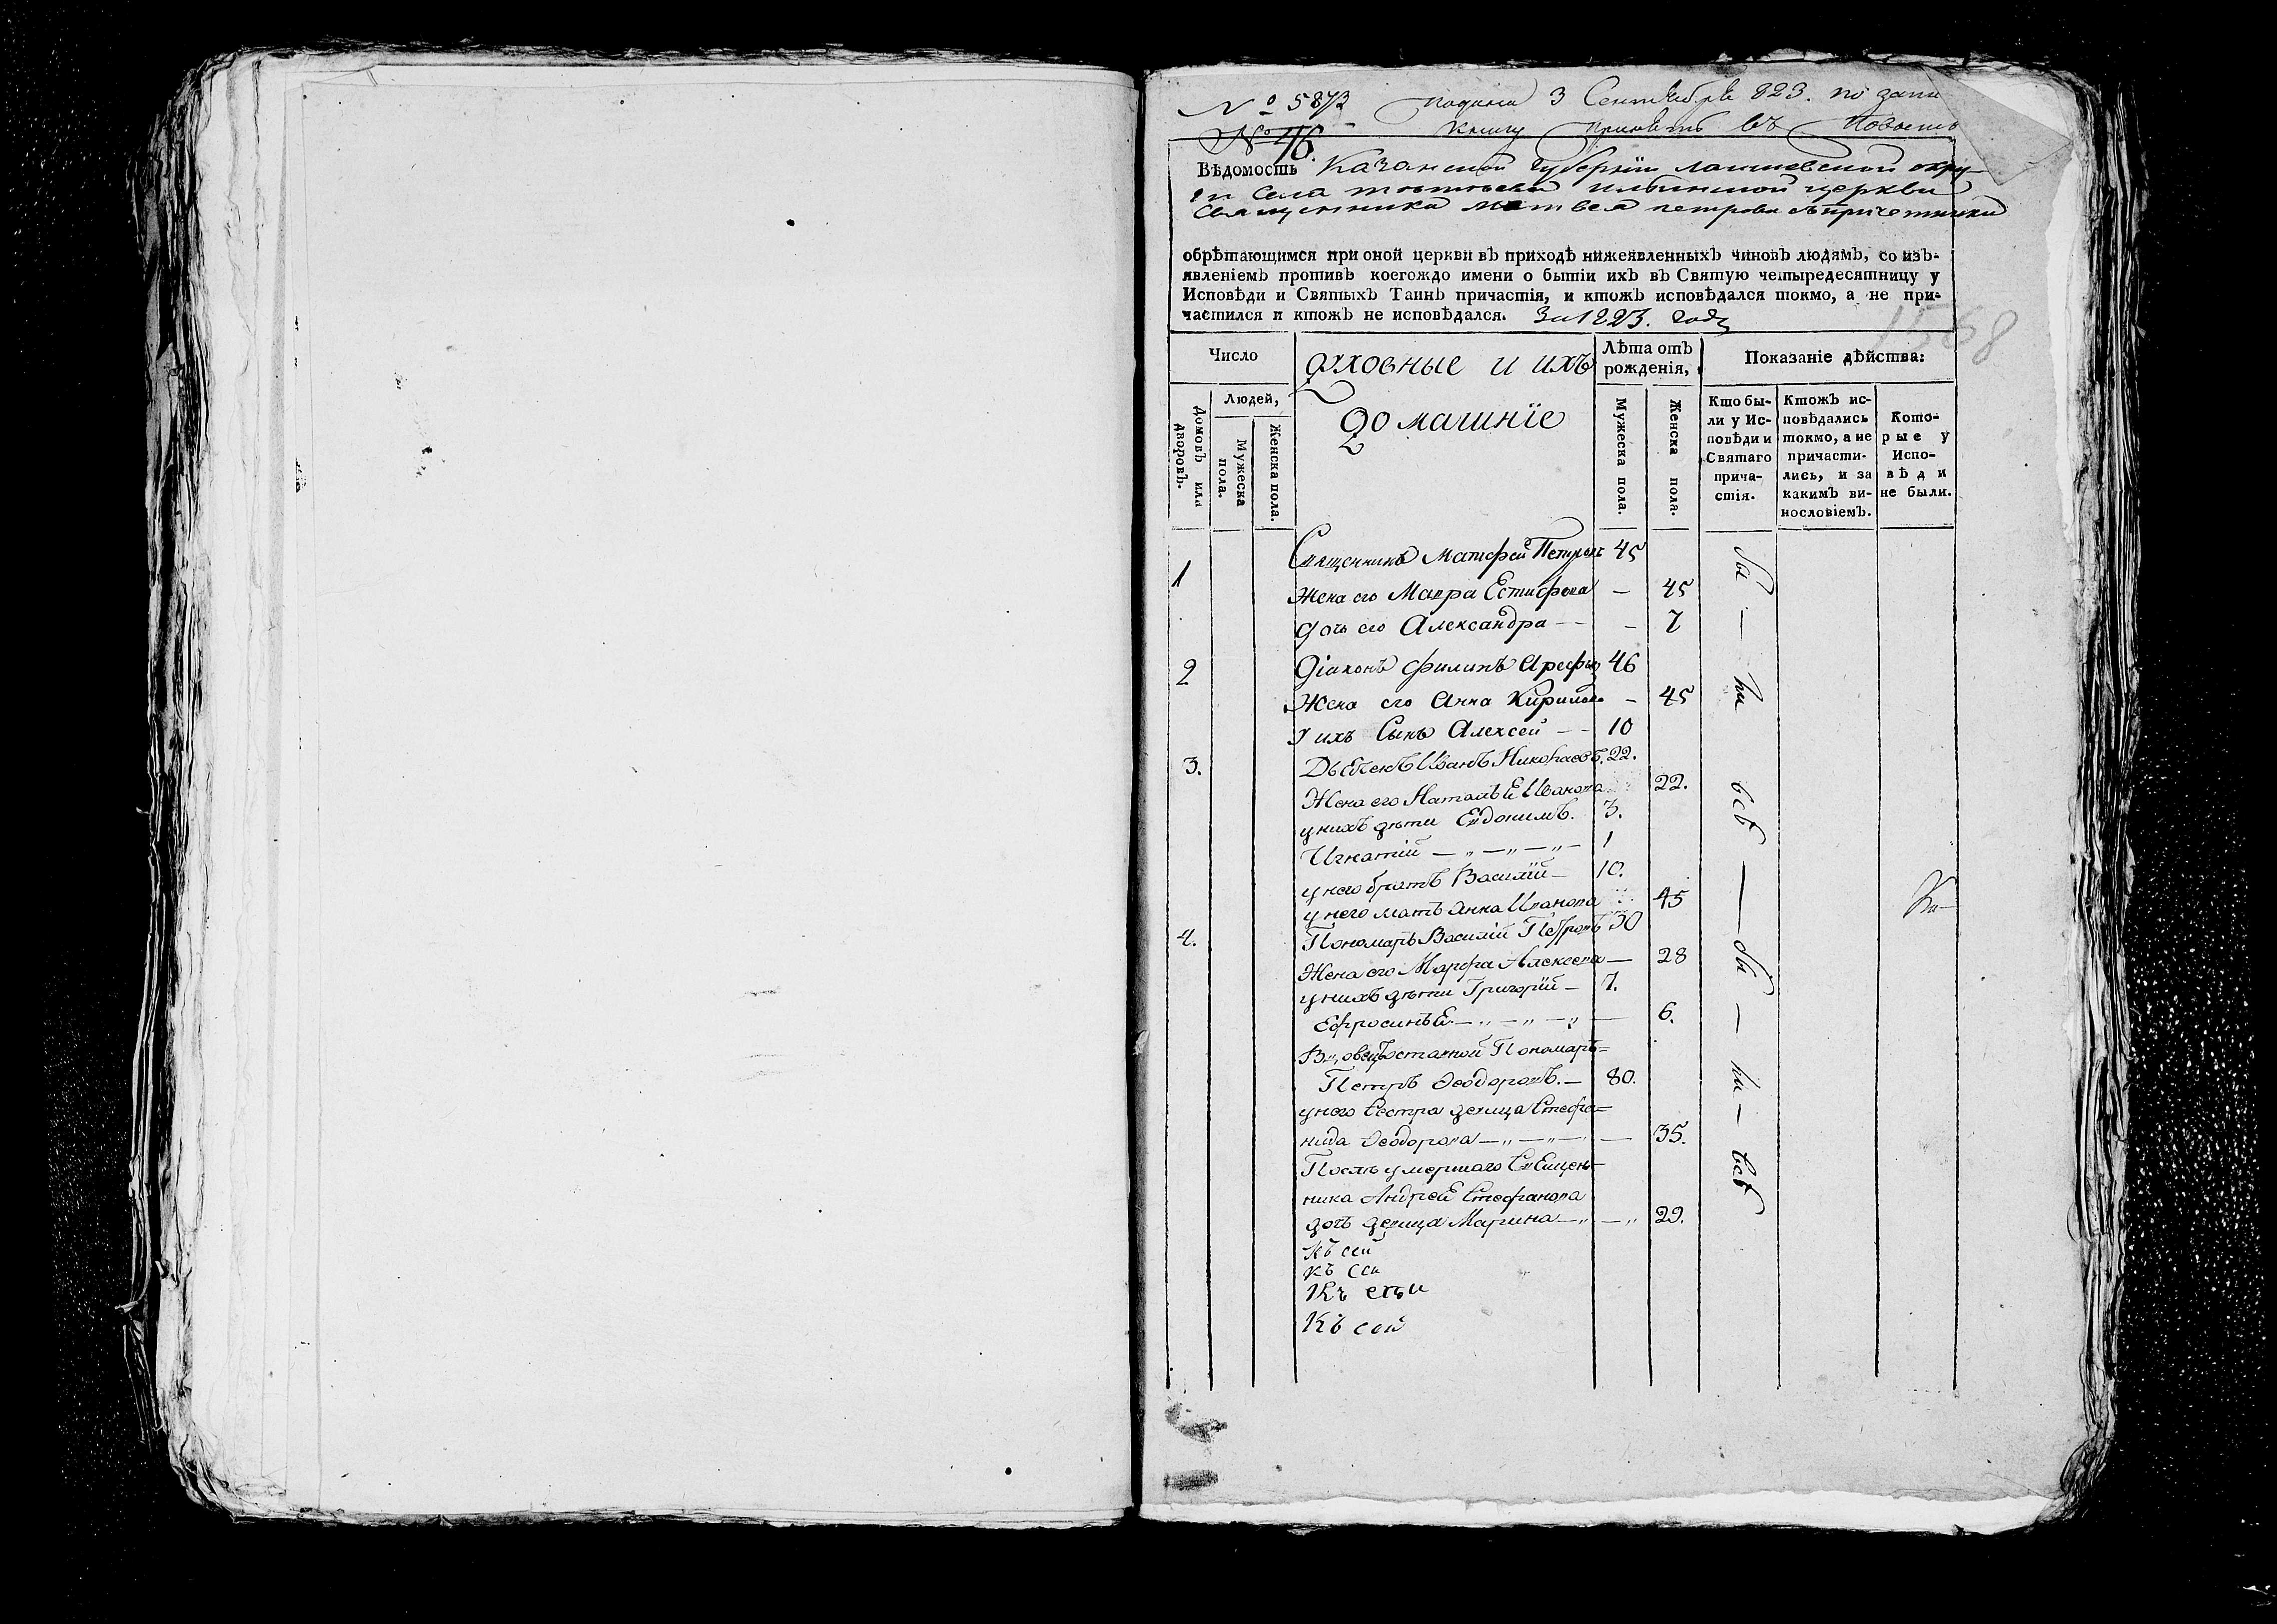 № 5873 подана 3 Сентября 823. по запи
№ 46. книгу принять въ
Вѣдомость Казанской губернїи лаишевской окру-
ги Села ильинской церкви
священника матвея петрова съ причетники
обрѣтающимся при оной церкви въ приходѣ нижеявленныхъ чиновъ людямъ, со изъ-
явленіемъ противъ коегождо имени о бытіи ихъ въ Святую четыредесятницу у
Исповѣди и Святыхъ Таинъ причастія, и ктожъ исповѣдался токмо, а не при-
частился и ктожъ не исповѣдался. За 1823. годъ
1568
Число
Людей,
Домовъ или дворовъ.
Мужеска пола.
Женска пола.
духовные и ихъ
домашнїе
Лѣта отъ
рожденія,
Мужеска пола.
Женска пола.
Показаніе дѣйства:
Кто бы-
ли у Ис-
повѣди и
Святаго
прича-
стія.
Ктожъ ис-
повѣдались
токмо, а не
причасти-
лись, и за
какимъ ви-
нословіемъ.
Кото-
рые у
Испо-
вѣди
не были.
1 Священникъ Матфей Петровъ 45
Жена его Мавра Естифѣева — 45
дочь его Александра — — — 7
2 Діаконъ филипъ Арефьев 46
Жена его Анна Кирилова — 45
У ихъ Сынъ Алексей — — 10
3. Дьячекъ Иванъ Николаевъ. 22.
Жена его Наталья Иванова 22.
у нихъ дѣти Евдокимъ. 3.
Игнатїй — „ — „ — „ — 1
у него братъ Василїй — 10.
у него мать Анна Иванова 45
4. Пономарь Василїй Петровъ 30
Жена его Марфа Алексеева — 28
у нихъ дѣти Григорїй — 7.
Ефросинья — „ — „ — „ — 6.
Пономарь=
Петръ Ѳеодоровъ. — 80.
у него Сестра девица Стефа=
нида Ѳеодорова — „ — „ — — 35.
Послѣ умершаго Священ-
ника Андрея Стефанова
дочь девица Марина — „ — „ 29.
бы — ли всѣ — бы — ли — всѣ
къ сей
къ сей
Къ сей
Къ сей